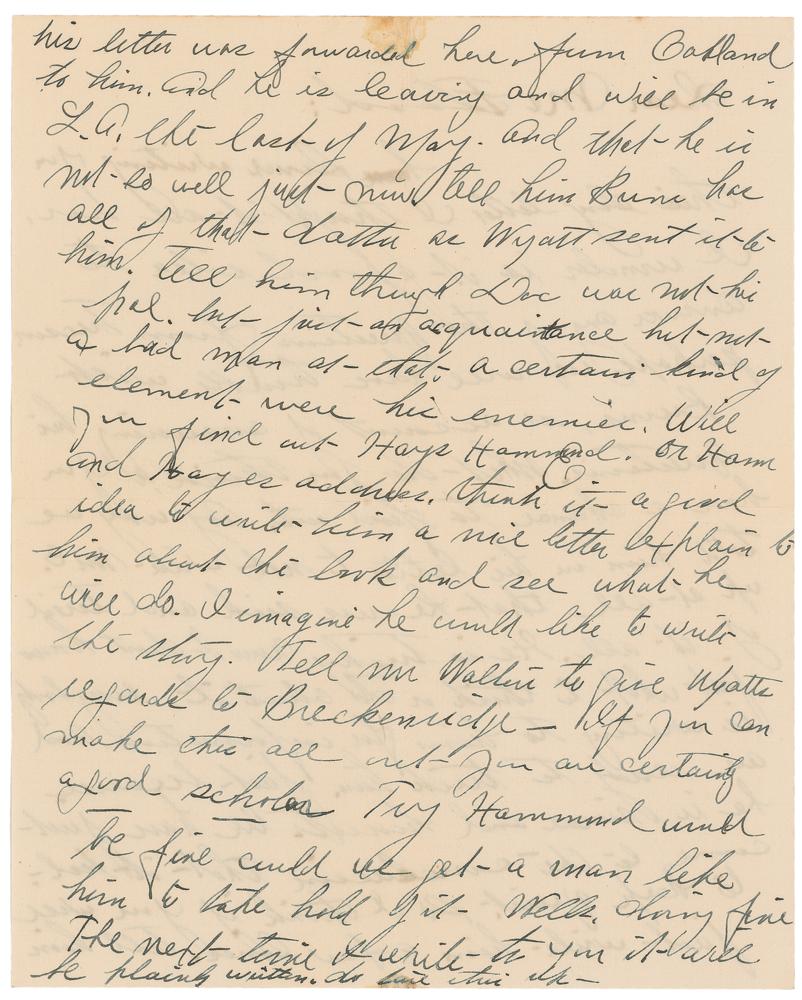 his letter was forwarded here, from Oakland
to him. and he is leaving and will be in
L.A. the last of May. and that he is
not so well just now, tell him Burns has
all of that datta as Wyatt sent it to
him. tell him though Doc was not his
pal. but just an acquaintance but not
a bad man at that. a certain kind of
element were his enemies. Will
you find out Hays Hammond. or Hamm
and Hayes address. think it a good
idea to write him a nice letter explain to
him about the book and see what he
will do. I imagine he would like to write
the story. Tell Mr Walter to give Wyatts
regards to Breckenridge — If you can
make this all out you are certainly
a good scholar Try Hammond would
be fine could we get a man like
him to take hold of it Wells. doing fine
The next time I write to you it will
be plainly written. do this